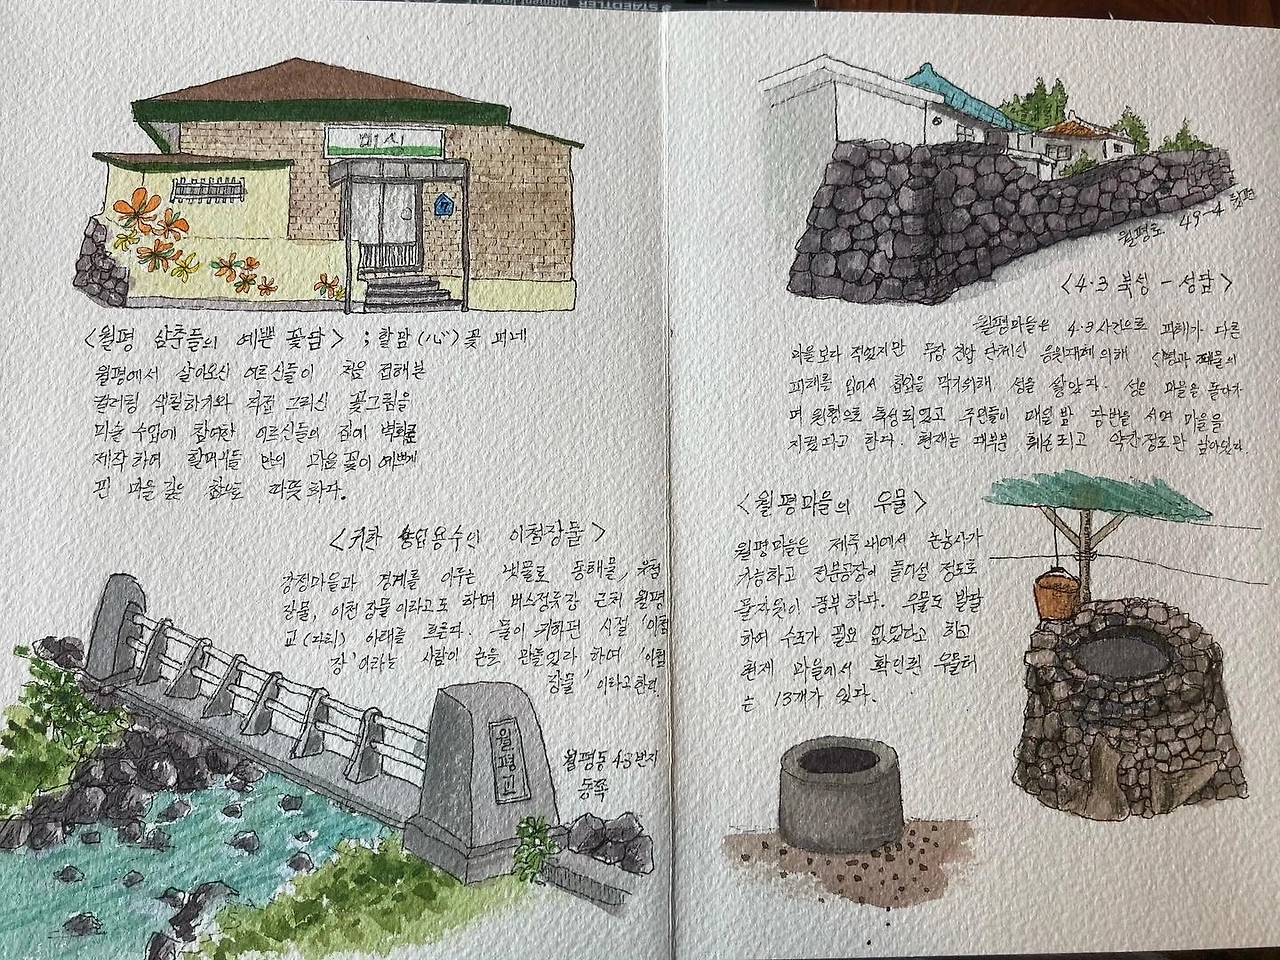 STAEDTLER pigment liner
미시
7
<월평 삼춘들의 예쁜 꽃담> ; 할맘(心)꽃 피네
월평에서 살아오신 어르신들이 처음 접해본
컬러링 색칠하기와 직접 그리신 꽃그림을
미술 수업에 참여한 어르신들의 집에 벽화로
제작하여 할머니들 만의 마음꽃이 예쁘게
핀 마을 길은 참으로 따뜻하다.
<귀한 용수인 이첨장물>
강정마을과 경계를 이루는 냇물로 동해물,
장물, 이천장물 이라고도 하며 버스정류장 근처 월평
교(다리) 아래를 흐른다. 물이 귀하던 시절 '이첨
장'이라는 사람이 논을 만들었다 하여 '이첨
장물'이라고 한다.
월평교
월평동 43번지
동쪽
월평로 49-4 월평
<4·3 북성 - 성담>
월평마을은 4·3사건으로 피해가 다른
마을보다 적었지만 무장 단체인 의해 인명과 재물의
피해를 입어서 막기위해 성을 쌓았다. 성은 마을을 돌아가
며 원형으로 축성되었고 주민들이 매일밤 당번을 서며 마을을
지켰다고 한다. 현재는 대부분 훼손되고 약간정도만 남아있다.
<월평마을의 우물>
월평마을은 제주 내에서 논농사가
가능하고 전분공장이 들어설 정도로
물자원이 풍부하다. 우물도 발달
하여 수도가 필요 없었다고 하고
현재 마을에서 확인된 우물터
는 13개가 있다.